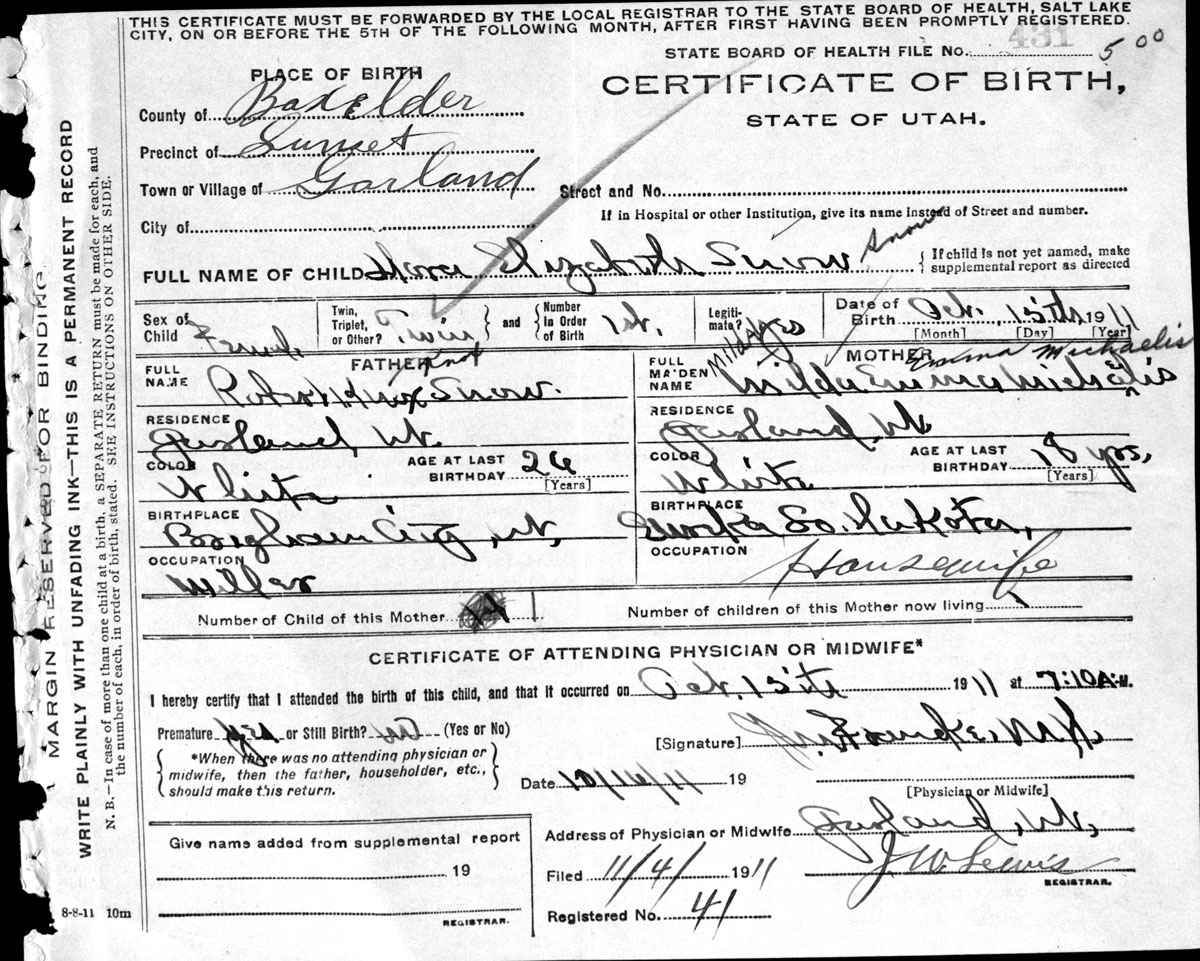 THIS CERTIFICATE MUST BE FORWARDED BY THE LOCAL REGISTRAR TO THE STATE BOARD OF HEALTH, SALT LAKE
CITY, ON OR BEFORE THE 5TH OF THE FOLLOWING MONTH, AFTER FIRST HAVING BEEN PROMPTLY REGISTERED.
STATE BOARD OF HEALTH FILE No. 431 5 00
PLACE OF BIRTH
CERTIFICATE OF BIRTH,
STATE OF UTAH.
County of Box Elder
Precinct of Sunset
Town or Village of Garland
Street and No.
If in Hospital or other Institution, give its name instead of Street and number.
City of
Snow
FULL NAME OF CHILD Elizabeth Snow
If child is not yet named, make
supplemental report as directed
Sex of Child Female
Twin, Triplet, or Other? Twin
and
Number In Order of Birth 1st.
Legiti-mate? Yes
Date of Birth Oct. 15th, 1911
[Month] [Day] [Year]
FATHER
Knox
FULL NAME Robert Knox Snow.
RESIDENCE
Garland, Ut.
COLOR
White
AGE AT LAST BIRTHDAY 26
[Years]
BIRTHPLACE
Brigham City, Ut,
OCCUPATION
Miller
MOTHER
Emma Michaelis
FULL MAIDEN NAME Milda Emma Michaelis
RESIDENCE
Garland, Ut
COLOR
White
AGE AT LAST BIRTHDAY 18 yrs.
[Years]
BIRTHPLACE
Eureka So. Dakota,
OCCUPATION
Housewife
Number of Child of this Mother 1
Number of children of this Mother now living
CERTIFICATE OF ATTENDING PHYSICIAN OR MIDWIFE*
I hereby certify that I attended the birth of this child, and that it occurred on Oct. 15th 1911 at 7:10 A. M.
Premature yes or Still Birth? (Yes or No)
*When there was no attending physician or
midwife, then the father, householder, etc.,
should make this return.
[Signature] Francke, M.D.
Date 10/16/11 19
[Physician or Midwife]
Address of Physician or Midwife Garland, Ut,
Filed 11/4/ 1911
J. W. Lewis
REGISTRAR.
Registered No. 41
Give name added from supplemental report
19
REGISTRAR.
8-8-11 10m
MARGIN RESERVED FOR BINDING.
WRITE PLAINLY WITH UNFADING INK—THIS IS A PERMANENT RECORD
N. B.—In case of more than one child at a birth, a SEPARATE RETURN must be made for each, and
the number of each, in order of birth, stated. SEE INSTRUCTIONS ON OTHER SIDE.